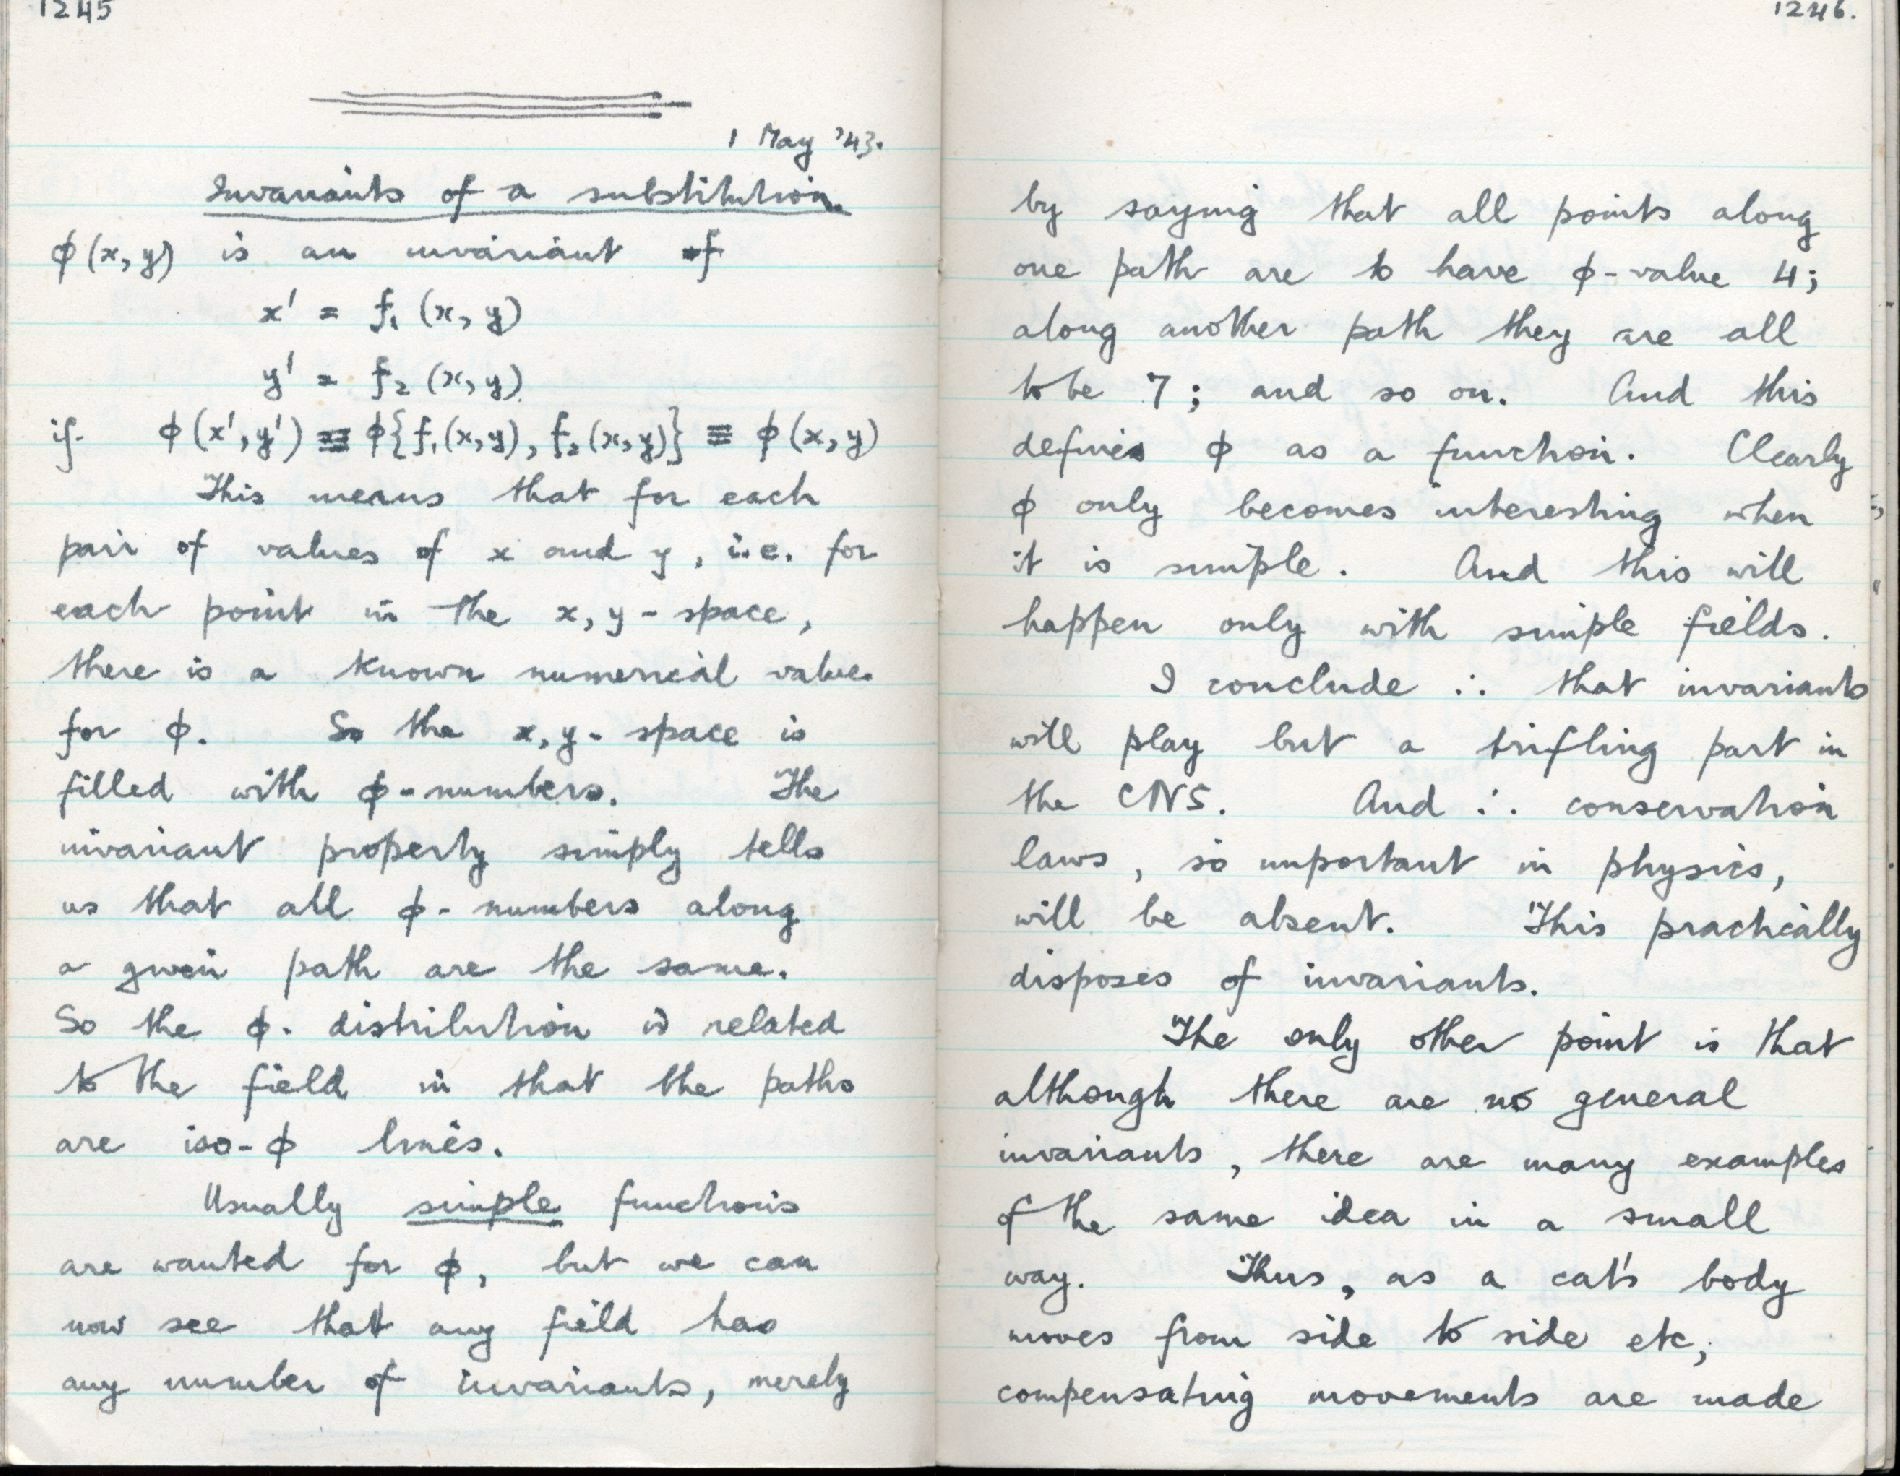 1245
1 May '43.
Invariants of a substitution.
ϕ(x, y) is an invariant of
x' = f₁ (x, y)
y' = f₂ (x, y)
if ϕ(x', y') ≡ ϕ{f₁(x,y), f₂(x,y)} ≡ ϕ(x, y)
This means that for each
pair of values of x and y, i.e. for
each point in the x, y - space,
there is a known numerical value
for ϕ. So the x, y - space is
filled with ϕ-numbers. The
invariant property simply tells
us that all ϕ - numbers along
a given path are the same.
So the ϕ - distribution is related
to the field in that the paths
are iso-ϕ lines.
Usually simple functions
are wanted for ϕ, but we can
now see that any field has
any number of invariants, merely
1246.
by saying that all points along
one path are to have ϕ-value 4;
along another path they are all
to be 7; and so on. And this
defines ϕ as a function. Clearly
ϕ only becomes interesting when
it is simple. And this will
happen only with simple fields.
I conclude ∴ that invariants
will play but a trifling part in
the CNS. And ∴ conservation
laws, so important in physics,
will be absent. This practically
disposes of invariants.
The only other point is that
although there are no general
invariants, there are many examples
of the same idea in a small
way. Thus, as a cat's body
moves from side to side etc,
compensating movements are made